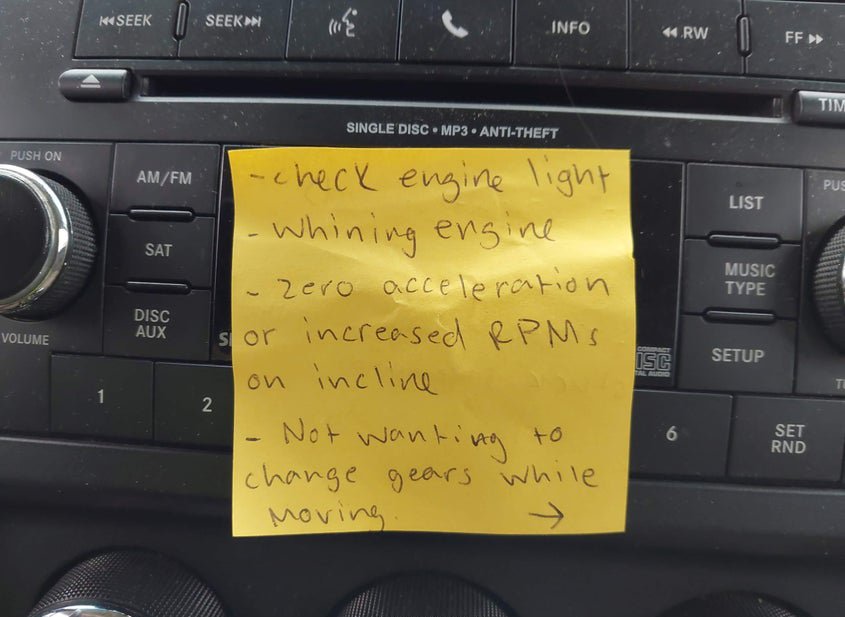 ⏮SEEK SEEK⏭ INFO ◀◀ RW FF ▶▶
TIM
SINGLE DISC • MP3 • ANTI-THEFT
PUSH ON
AM/FM
SAT
DISC
AUX
VOLUME
1
2
- check engine light
- whining engine
- zero acceleration
or increased RPMs
on incline
- Not wanting to
change gears while
moving.
→
COMPACT
DISC
DIGITAL AUDIO
LIST
MUSIC
TYPE
SETUP
PUS
6
SET
RND